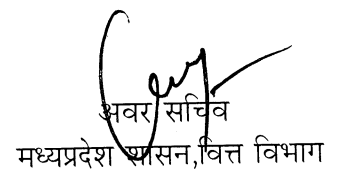 अवर सचिव
मध्यप्रदेश शासन,वित्त विभाग